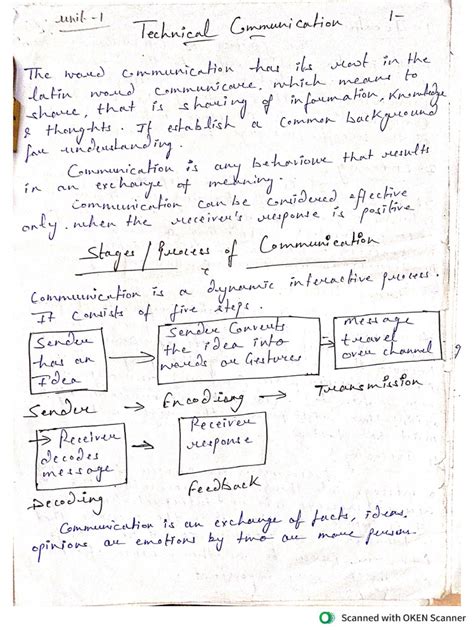 unit-1
1-
Technical Communication
The word communication has its root in the
latin word communicare, which means to
share, that is sharing of information, knowledge
& thoughts. It establish a common background
for understanding.
Communication is any behaviour that results
in an exchange of meaning.
Communication can be considered effective
only when the receiver's response is positive
Stages/Process of Communication
Communication is a dynamic interactive process.
It consists of five steps.
Sender
has an
Idea
Sender Converts
the idea into
words or Gestures
message
travel
over channel
Sender → Encoding → Transmission
→ Receiver
decodes
message
Receiver
response
Decoding
feedback
Communication is an exchange of facts, ideas,
opinions or emotions by two or more person.
Scanned with OKEN Scanner